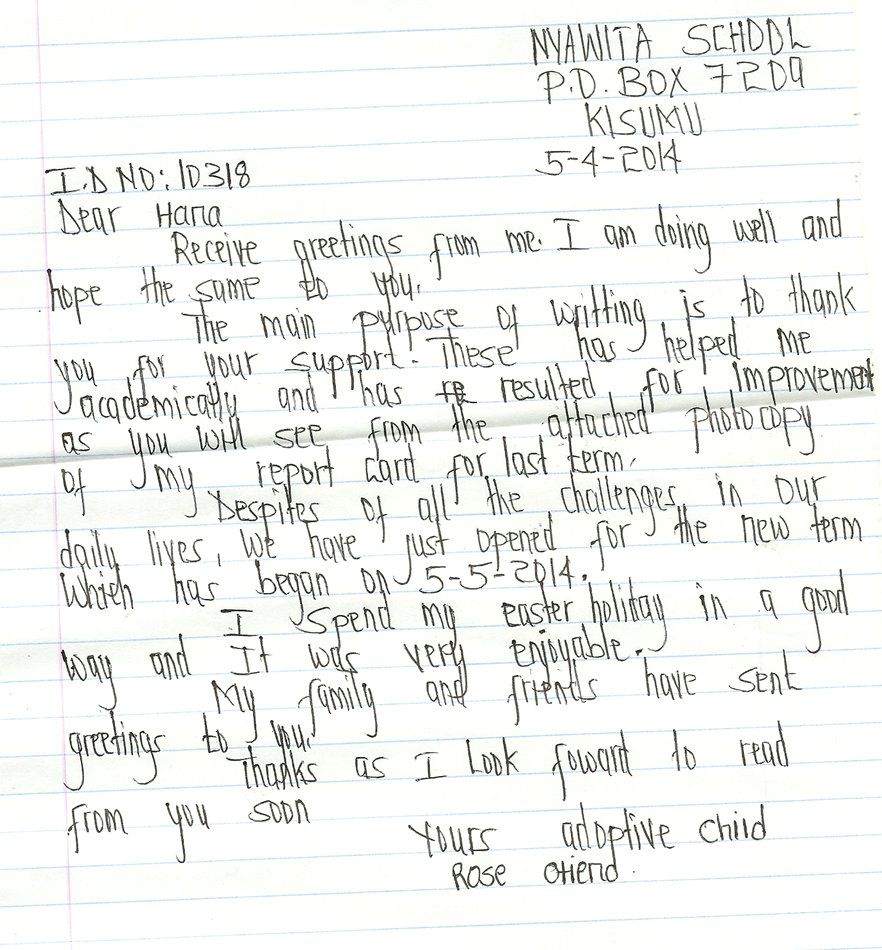 NYAWITA SCHOOL
P.O. BOX 7209
KISUMU
5-4-2014
I.D NO: 10318
Dear Hana
Receive greetings from me. I am doing well and
hope the same to you.
The main purpose of writting is to thank
you for your support. These has helped me
academically and has resulted for improvement
as you will see from the attached photocopy
of my report card for last term.
Despites of all the challenges in our
daily lives, we have just opened for the new term
which has began on 5-5-2014.
I spend my easter holiday in a good
way and It was very enjoyable.
My family and friends have sent
greetings to you.
Thanks as I Look foward to read
from you soon
Yours adoptive child
Rose Otieno.